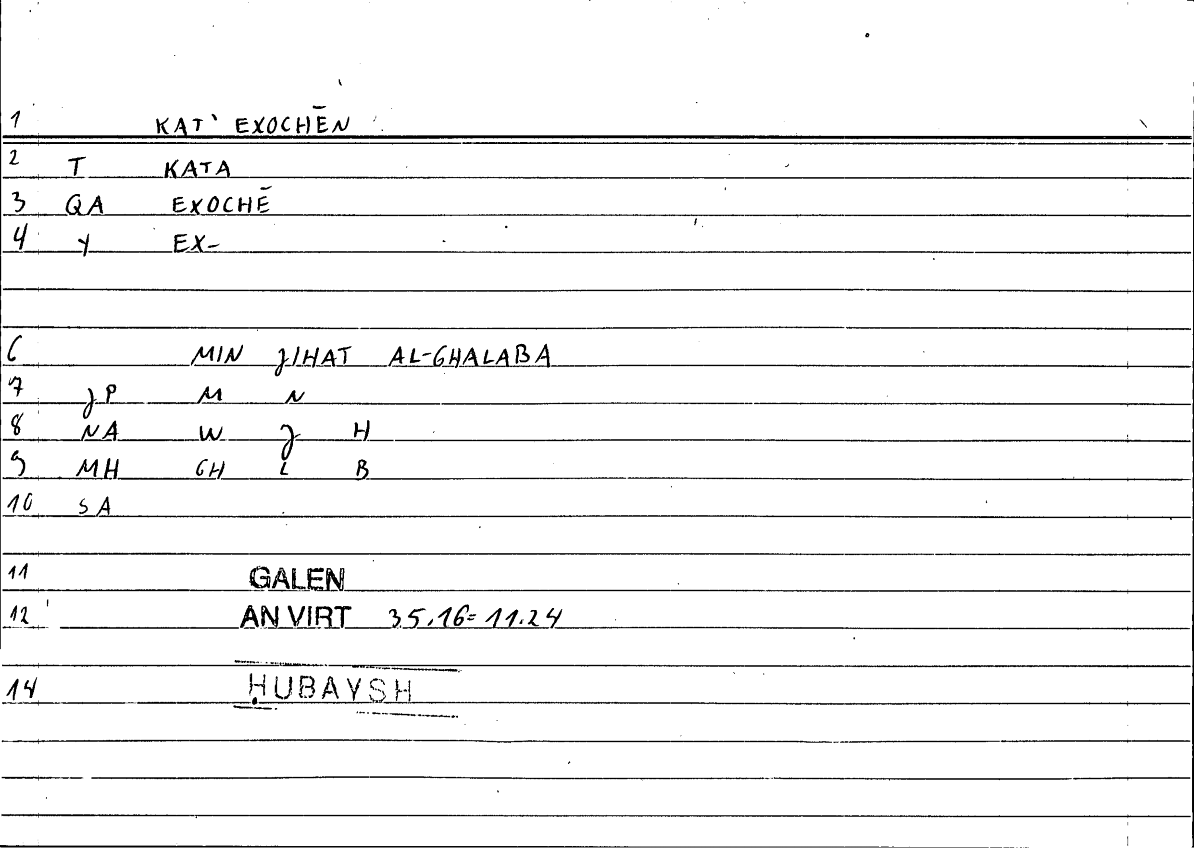 1 KAT' EXOCHĒN
2 T KATA
3 QA EXOCHĒ
4 Y EX-
6 MIN JIHAT AL-GHALABA
7 JP M N
8 NA W J H
9 MH GH L B
10 SA
11 GALEN
12 AN VIRT 35.16=11.24
14 ḤUBAYSH